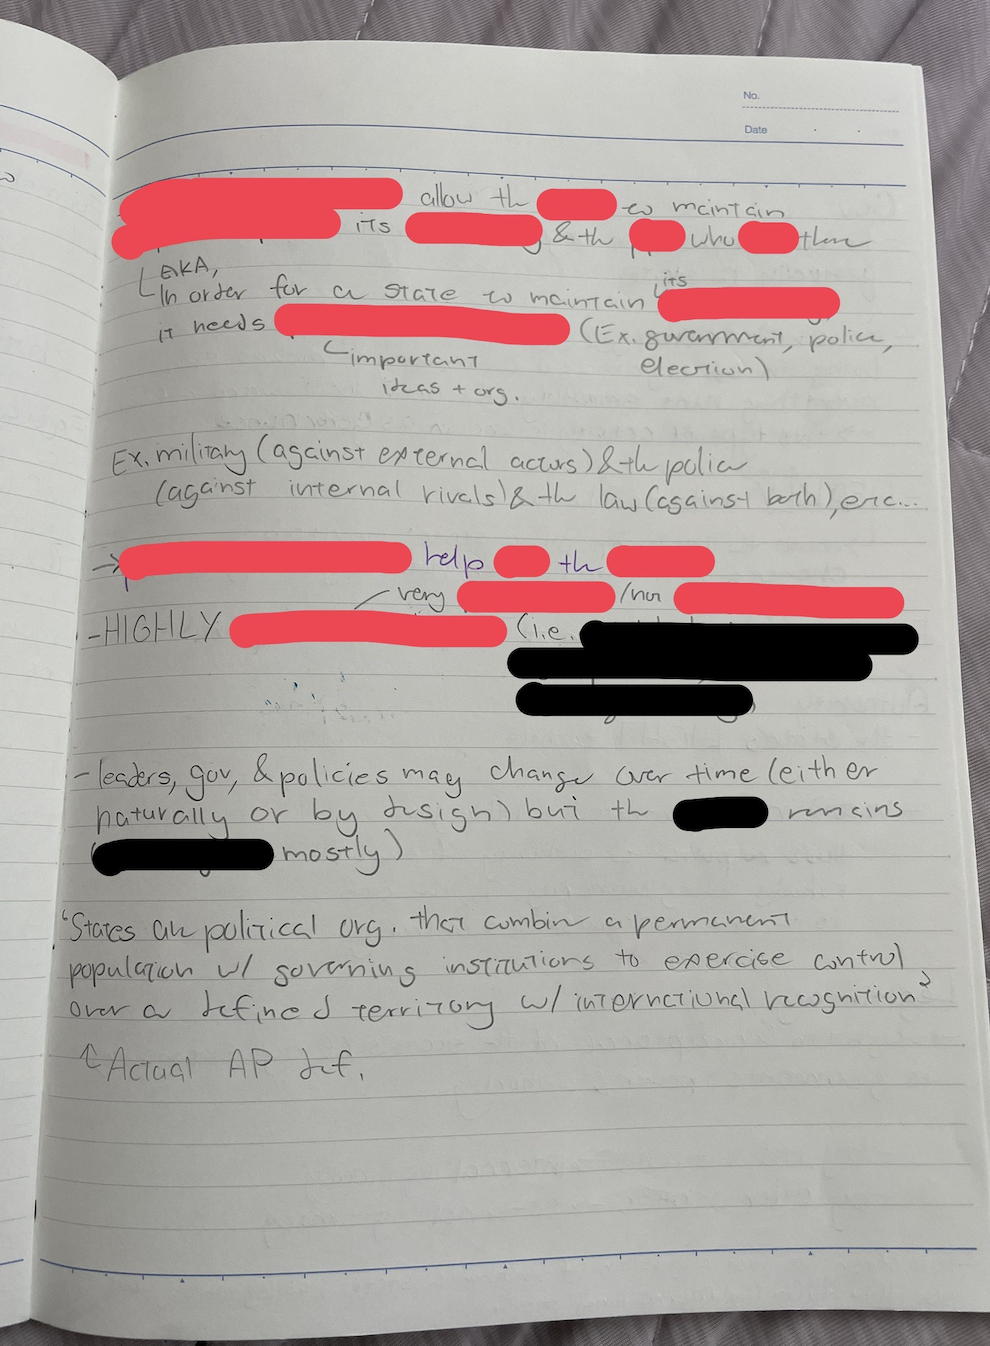 No.
Date
allow th to maintain
its & th who there
AKA,
its
In order for a state to maintain
it needs (Ex. government, police,
important election)
ideas + org.
Ex. military (against external actors) & th police
(against internal rivals) & th law (against both), etc...
→ help th
very /not
- HIGHLY (i.e.
- leaders, gov, & policies may change over time (either
naturally or by design) but th remains
( mostly)
"States are political org. that combine a permanent
population w/ governing institutions to exercise control
over a defined territory w/ international recognition"
↑ Actual AP def.